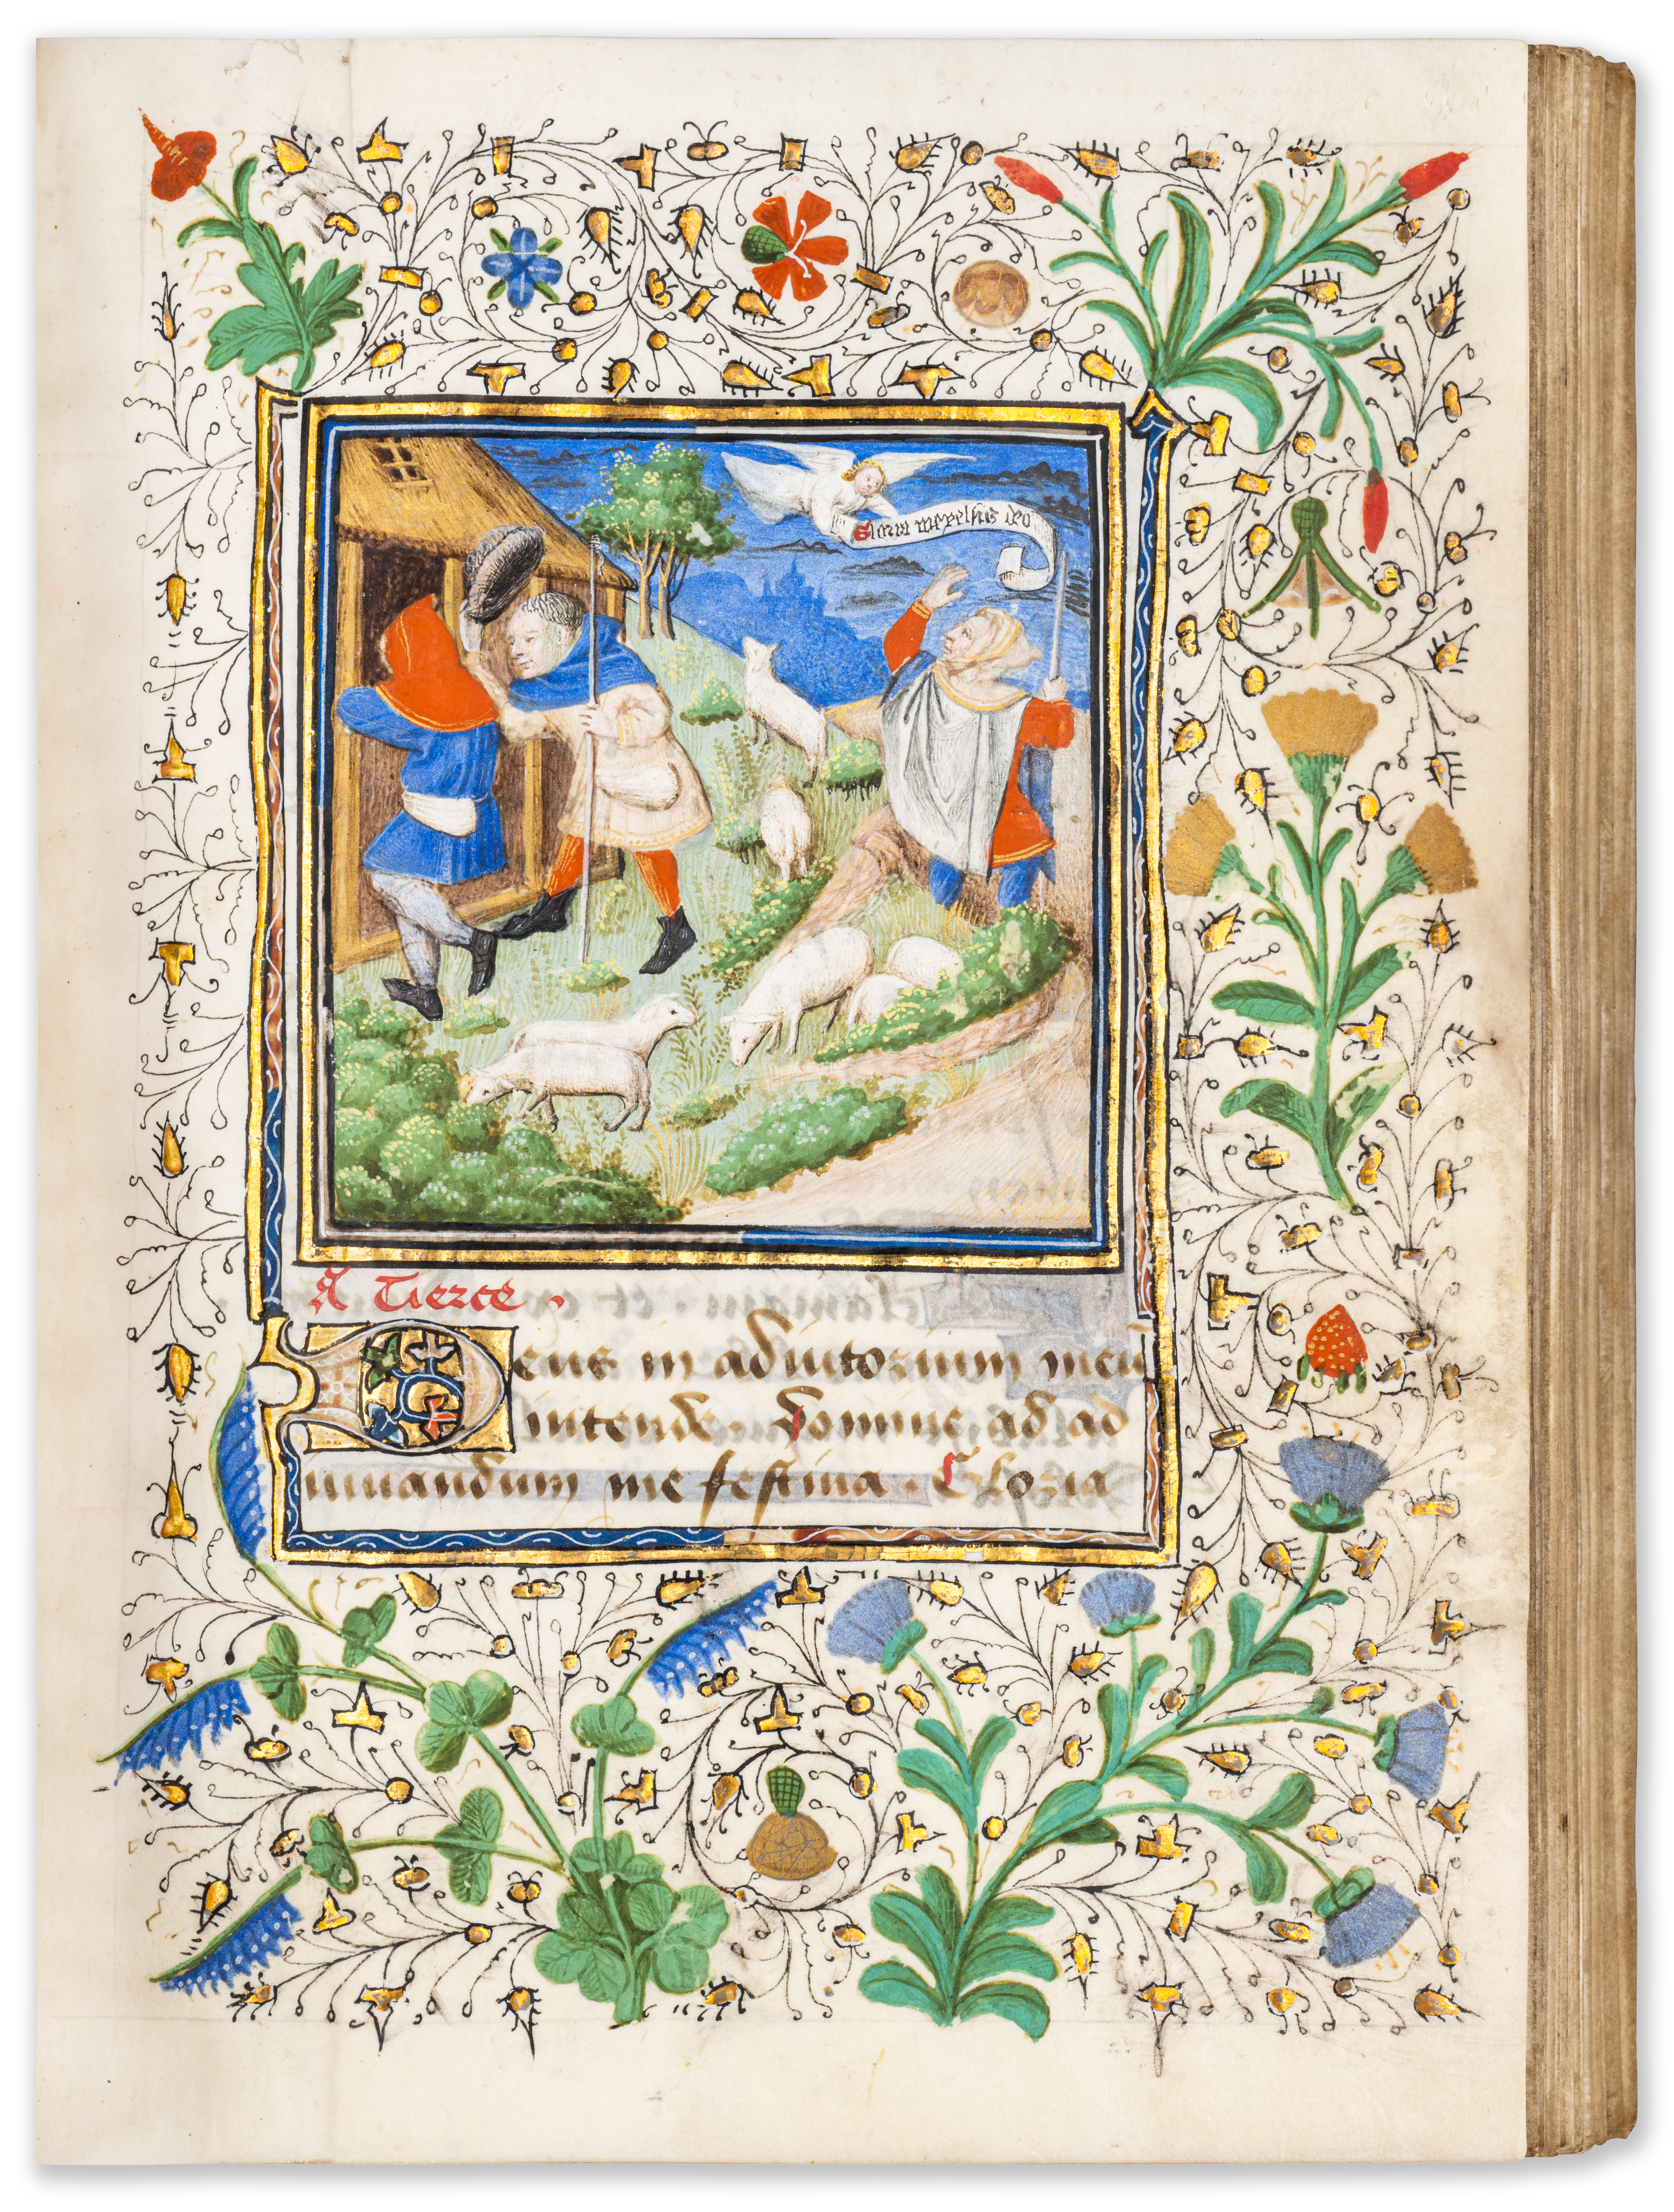 Gloria in excelsis deo
A Tierce .
Deus in adiutorium meū
intende. domine ad ad
iuuandum me festina . Gloria